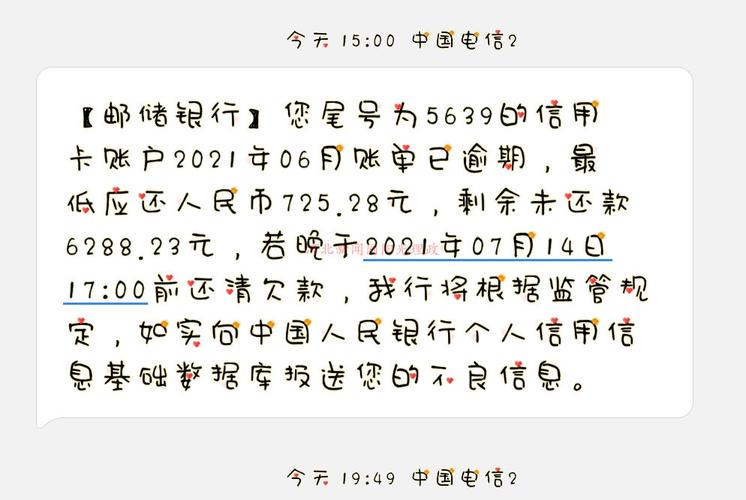 今天 15:00 中国电信2
【邮储银行】您尾号为5639的信用
卡账户2021年06月账单已逾期，最
低应还人民币725.28元，剩余未还款
6288.23元，若晚于2021年07月14日
17:00前还清欠款，我行将根据监管规
定，如实向中国人民银行个人信用信
息基础数据库报送您的不良信息。
今天 19:49 中国电信2